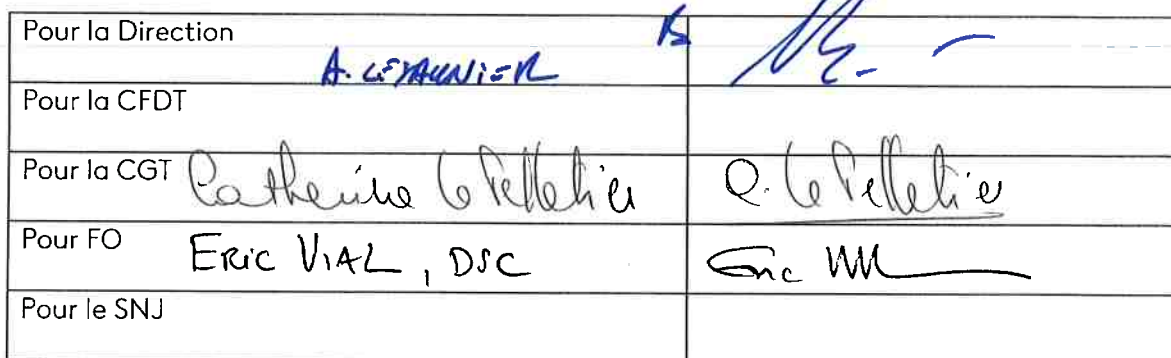 Pour la Direction
A.
Pour la CFDT
Pour la CGT Catherine Le Pelletier C. Le Pelletier
Pour FO ERIC VIAL, DSC Eric
Pour le SNJ